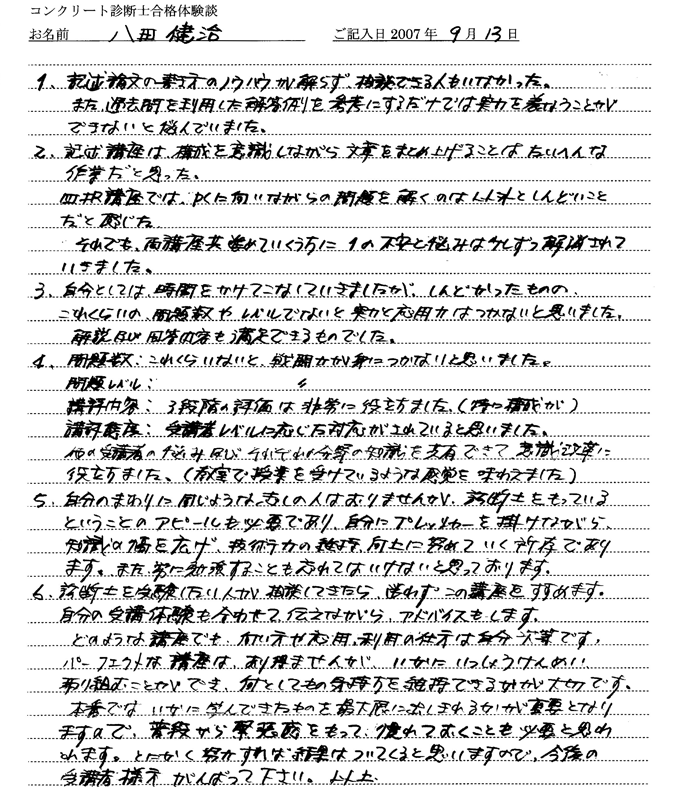 コンクリート診断士合格体験談
お名前 八田 健治 ご記入日 2007年 9月 13日
1、記述論文の書き方のノウハウが解らず、相談できる人もいなかった。
また、過去問を利用した解答例を参考にするだけでは実力を養なうことが
できないと悩んでいました。
2、記述講座は、構成を意識しながら文章をまとめ上げることはたいへんな
作業だと思った。
四択講座では、PCに向いながらの問題を解くのは以外としんどいこと
だと感じた
それでも、両講座共進めていくうちに1の不安と悩みは少しずつ解消されて
いきました。
3、自分としては、時間をかけてこなしていきましたが、しんどかったものの、
これくらいの、問題数や、レベルでないと実力と応用力はつかないと思いました。
解説及び回答内容も満足できるものでした。
4、問題数：これくらいないと、戦闘力が身につかないと思いました。
問題レベル： 〃
講評内容：3段階の評価は非常に役立ちました。（特に構成が）
講評精度：受講者レベルに応じた対応がされていると思いました。
他の受講者の悩み及びそれぞれ分野の知識を共有できて、意識改革に
役立ちました。（教室で授業を受けているような感覚を味わえました）
5、自分のまわりに同じような志しの人はおりませんが、診断士をもっている
ということのアピールも必要であり、自分にプレッシャーを掛けながら、
知識の幅を広げ、技術力の維持、向上に努めていく所存であり
ます。また、常に勉強することも忘れてはいけないと思っております。
6、診断士を受験したい人が相談してきたら、迷わずこの講座をすすめます。
自分の受講体験も合わせて、伝えながら、アドバイスもします。
どのような講座でも、使い方や応用、利用の仕方は自分次第です。
パーフェクトな講座は、あり得ませんが、いかにいっしょうけんめい
取り組むことができ、何としてもの気持ちを維持できるかが大切です。
本番では、いかに学んできたものを最大限に出しきれるかが重要となり
ますので、普段から緊張感をもって、慣れておくことも必要と思わ
れます。とにかく努力すれば結果はついてくると思いますので、今後の
受講者様方がんばって下さい。以上